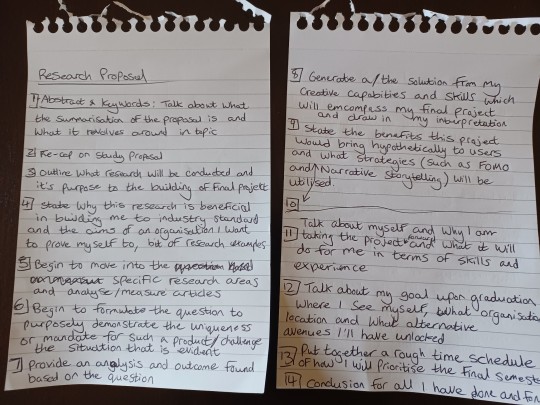 Research Proposal
1) Abstract & Keywords: Talk about what
the summarisation of the proposal is and
what it revolves around in topic
2) Re-cap on study Proposal
3) Outline what research will be conducted and
it's purpose to the building of final project
4) State why this research is beneficial
in building me to industry standard
and the aims of an organisation I want
to prove myself to, bit of research examples
5) Begin to move into the
specific research areas
and analyse/measure articles
6) Begin to formulate the question to
purposely demonstrate the uniqueness
or mandate for such a product/challenge
the situation that is evident
7) Provide an analysis and outcome found
based on the question
8) Generate a/the solution from my
Creative Capabilities and skills which
will encompass my final project
and draw in my interpretation
9) State the benefits this project
would bring hypothetically to users
and what strategies (such as FOMO
and Narrative Storytelling) will be
utilised.
10)
11) Talk about myself and why I am
taking the project forward and what it will
do for me in terms of skills and
experience
12) Talk about my goal upon graduation
where I see myself, what organisation
location and what alternative
avenues I'll have unlocked
13) Put together a rough time schedule
of how I will prioritise the final semest
14) Conclusion for all I have done and